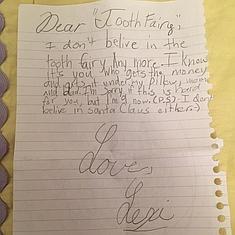 Dear "Tooth Fairy",
I don't belive in the
tooth fairy any more. I know
it's you who gets the money
and puts it under my pillow, mom
and dad. I'm sorry if this is hard
for you, but I'm 9 now. (P.S) I don't
believe in santa Claus either.)
Love,
Lexi